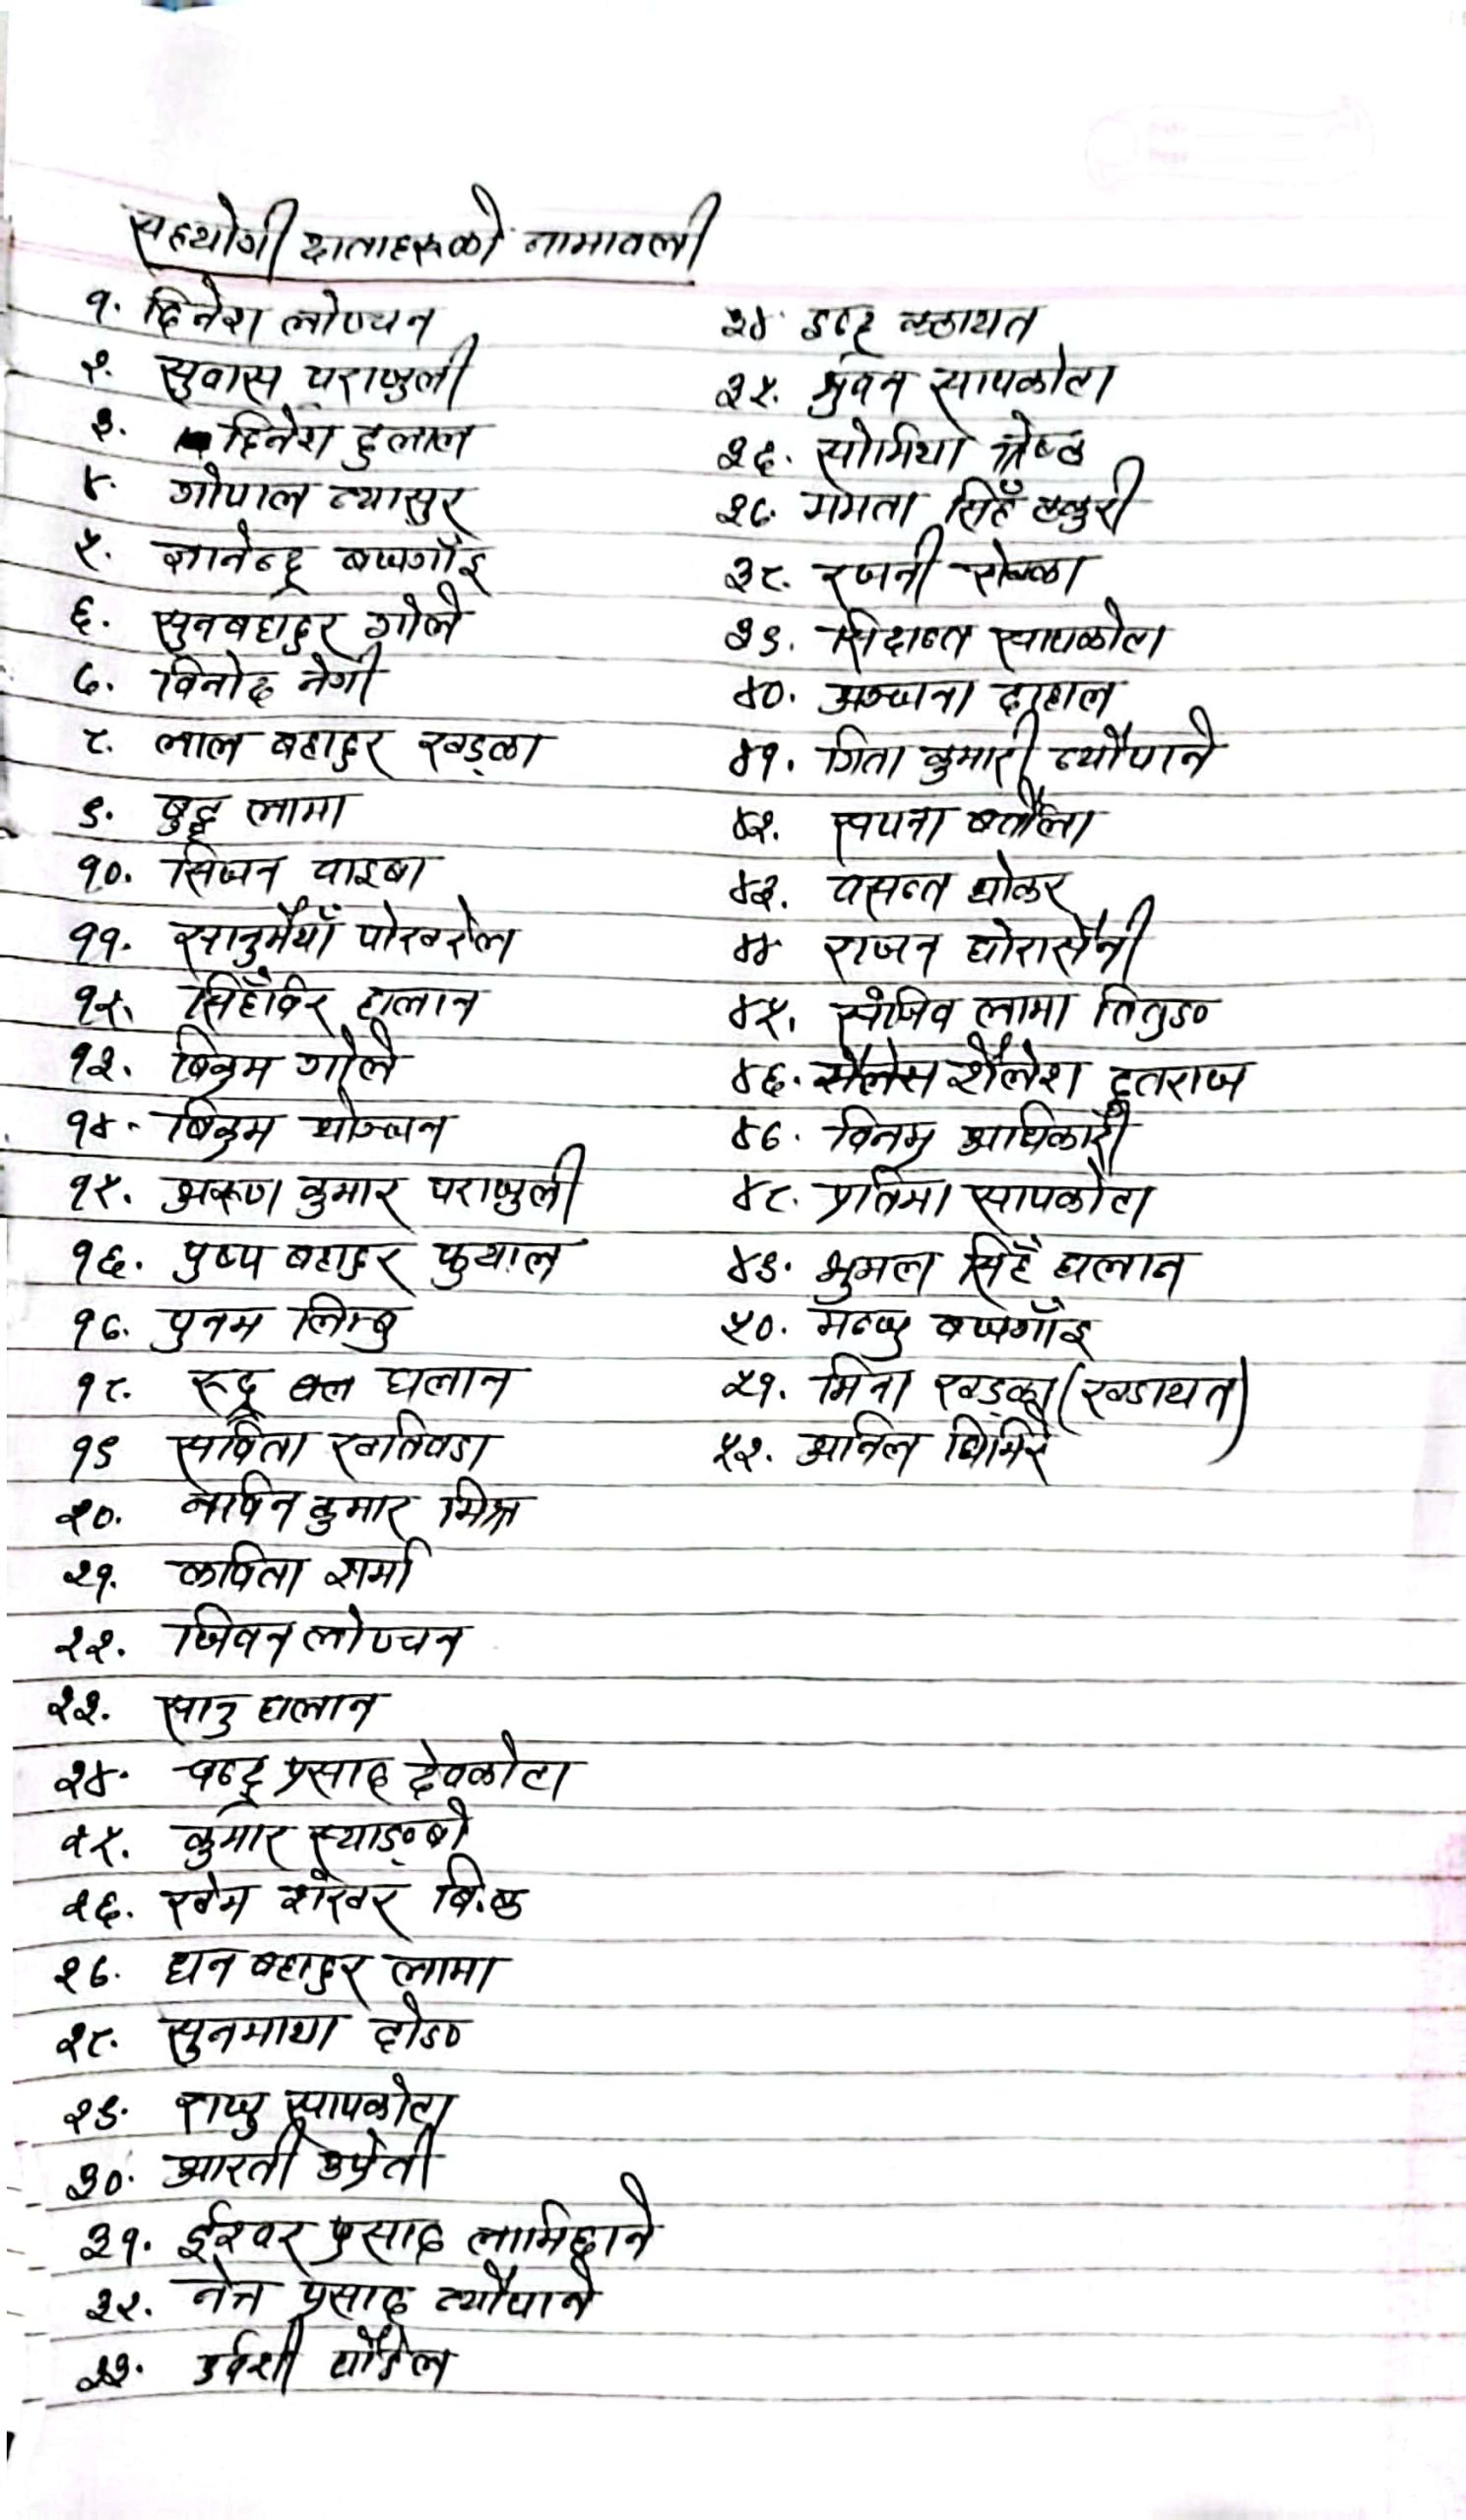 सहयोगी दाताहरूको नामावली
१. दिनेश लोप्चन
२. सुवास पराजुली
३. दिनेश दुलाल
४. गोपाल न्यासुर
५. ज्ञानेन्द्र बजगाँइ
६. सुनबहादुर गोले
७. विनोद नेगी
८. लाल बहादुर खड्का
९. बुद्ध लामा
१०. सिजन वाइबा
११. सानुमैयाँ पोखरेल
१२. सिहँविर घलान
१३. बिक्रम गोले
१४. बिक्रम योञ्जन
१५. अरूण कुमार पराजुली
१६. पुष्प बहादुर फुयाल
१७. पुनम लिम्बु
१८. रूद्र बल घलान
१९ सविता खतिवडा
२०. नविन कुमार मिश्र
२१. कविता शर्मा
२२. जिवन लोप्चन
२३. सानु घलान
२४. चन्द्र प्रसाद देवकोटा
२५. कुमार स्याङ्बो
२६. खेम शेखर बि.क
२७. धन बहादुर लामा
२८. सुनमाया दोङ
२९. राजु सापकोटा
३०. आरती उप्रेती
३१. ईश्वर प्रसाद लामिछाने
३२. नेत्र प्रसाद न्यौपाने
३३. उर्वशी पौडेल
३४. इन्द्र कठायत
३५. भुवन सापकोटा
३६. सोमिया श्रेष्ठ
३७. ममता सिहँ ठकुरी
३८. रजनी रोक्का
३९. सिदान्त सापकोटा
४०. अञ्जना दाहाल
४१. गिता कुमारी न्यौपाने
४२. सपना बर्तौला
४३. वसन्त थोकर
४४ राजन घोरासैनी
४५. संजिव लामा तितुङ
४६. शैलेश दुतराज
४७. विनम्र अधिकारी
४८. प्रतिमा सापकोटा
४९. भुमल सिहँ घलान
५०. मन्जु बजगाँइ
५१. मिना खड्का (खडायत)
५२. अनिल घिमिरे